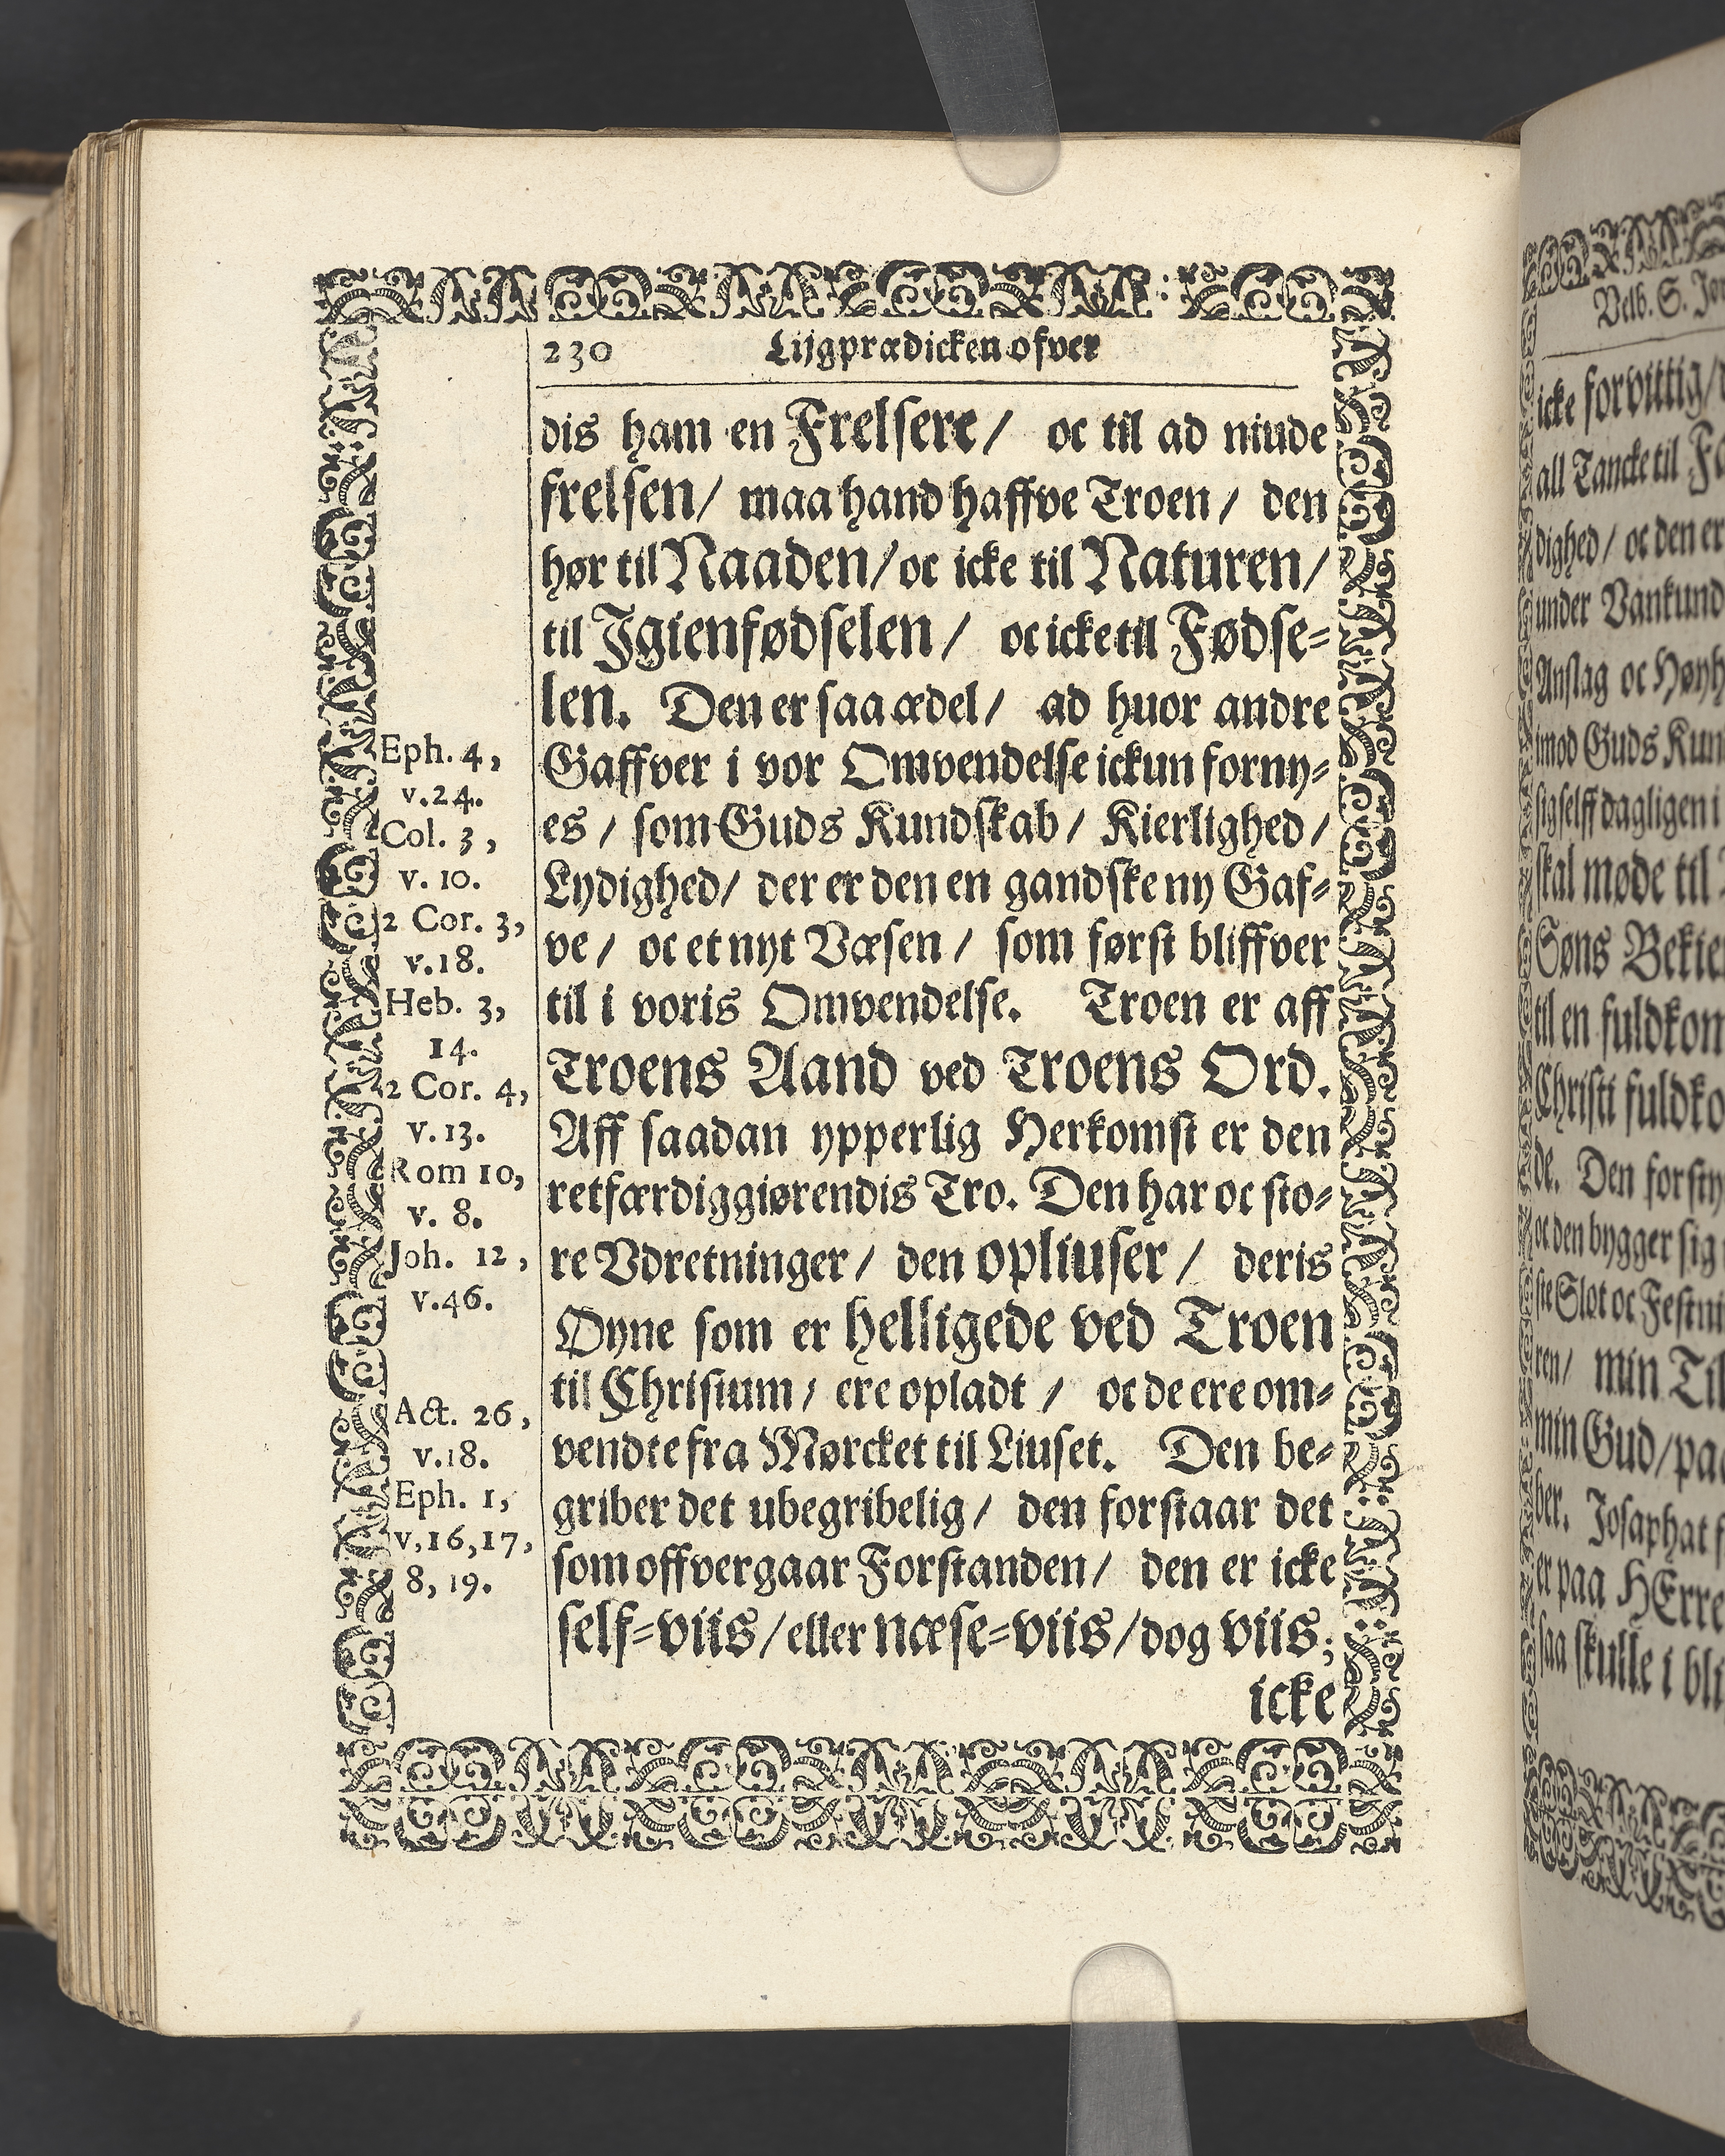 230 Lijgprædicken ofver
dis ham en Frelsere / oc til ad niude
frelsen / maa hand haffve Troen / den
hør til Naaden / oc icke til Naturen /
til Igienfødselen / oc icke til Fødse=
len. Den er saa ædel / ad huor andre
Gaffver i vor Omvendelse ickun forny=
es / som Guds Kundskab / Kierlighed /
Lydighed / der er den en gandske ny Gaf=
ve / oc et nyt Væsen / som først bliffver
til i voris Omvendelse. Troen er aff
Troens Aand ved Troens Ord.
Aff saadan ypperlig Herkomst er den
retfærdiggiørendis Tro. Den har oc sto=
re Vdretninger / den opliuser / deris
Øyne som er helligede ved Troen
til Christum / ere opladt / oc de ere om=
vendte fra Mørcket til Liuset. Den be=
griber det ubegribelig / den forstaar det
som offvergaar Forstanden / den er icke
self=viis / eller næse=viis / dog viis;
icke
Eph. 4,
v.24.
Col. 3,
v. 10.
2 Cor. 3,
v.18.
Heb. 3,
14.
2 Cor. 4,
v.13.
Rom 10,
v. 8.
Joh. 12,
v.46.
Act. 26,
v.18.
Eph. 1,
v,16,17,
8, 19.
Velb. S.
icke forvittig /
all Tancke til
dighed / oc den er
under
Anslag oc
imod Guds
sigselff dagligen i
skal møde til
Søns
til en
Christi
de. Den
oc den bygger sig
Slot oc
ren / min
min Gud / paa
ber. Josaphat
er paa HErre
saa skulle i